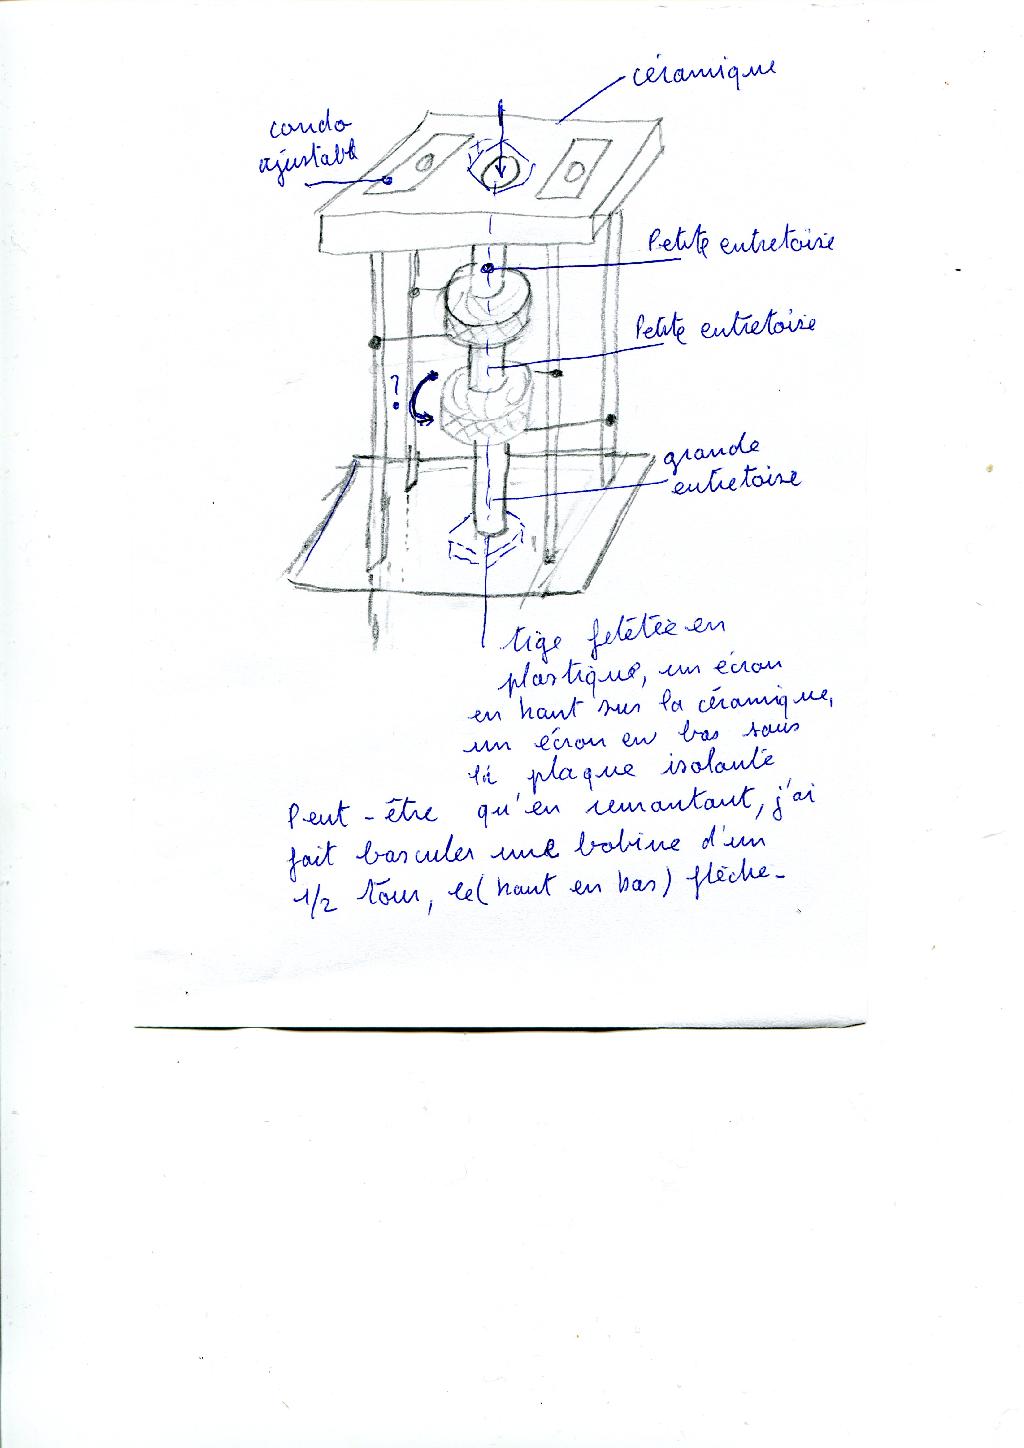 céramique
condo
ajustable
Petite entretoise
Petite entretoise
?
grande
entretoise
tige feletée en
plastique, un écrou
en haut sur la céramique,
un écrou en bas sous
la plaque isolante
Peut-être qu'en remontant, j'ai
fait basculer une bobine d'un
1/2 tour, le (haut en bas) flèche-